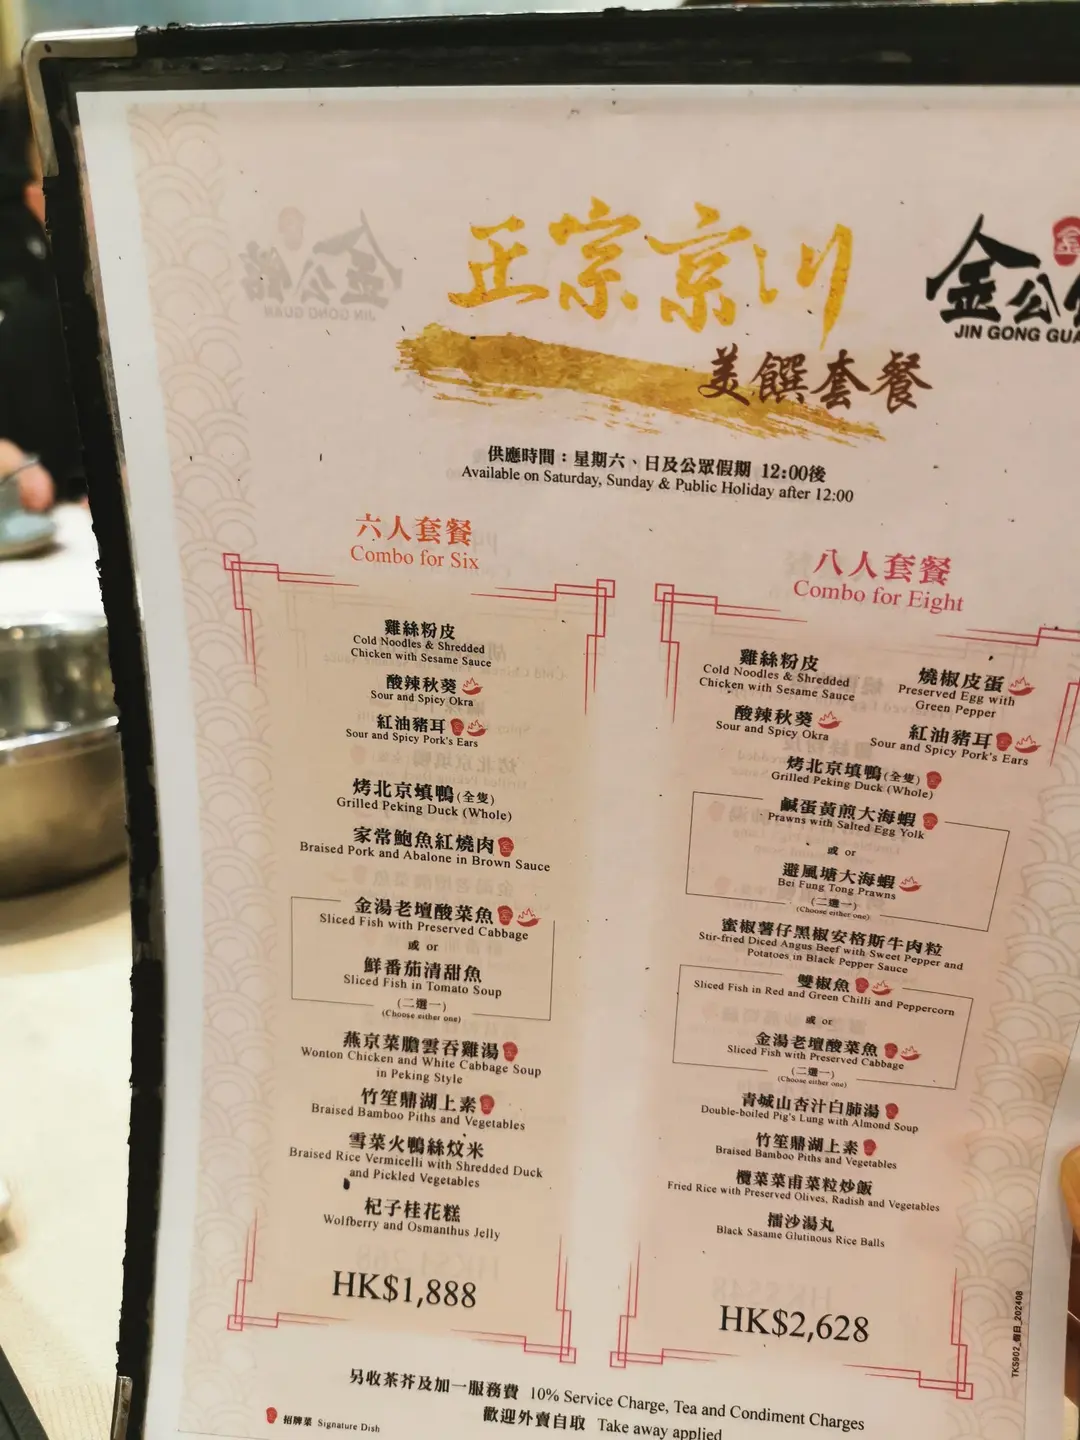 正宗京川
美饌套餐
金公館
JIN GONG GUAN
金公
JIN GONG GUA
供應時間：星期六、日及公眾假期 12:00後
Available on Saturday, Sunday & Public Holiday after 12:00
六人套餐
Combo for Six
雞絲粉皮
Cold Noodles & Shredded
Chicken with Sesame Sauce
酸辣秋葵
Sour and Spicy Okra
紅油豬耳
Sour and Spicy Pork's Ears
烤北京填鴨(全隻)
Grilled Peking Duck (Whole)
家常鮑魚紅燒肉
Braised Pork and Abalone in Brown Sauce
金湯老壇酸菜魚
Sliced Fish with Preserved Cabbage
或 or
鮮番茄清甜魚
Sliced Fish in Tomato Soup
(二選一)
(Choose either one)
燕京菜膽雲吞雞湯
Wonton Chicken and White Cabbage Soup
in Peking Style
竹笙鼎湖上素
Braised Bamboo Piths and Vegetables
雪菜火鴨絲炆米
Braised Rice Vermicelli with Shredded Duck
and Pickled Vegetables
杞子桂花糕
Wolfberry and Osmanthus Jelly
HK$1,888
八人套餐
Combo for Eight
雞絲粉皮
Cold Noodles & Shredded
Chicken with Sesame Sauce
燒椒皮蛋
Preserved Egg with
Green Pepper
酸辣秋葵
Sour and Spicy Okra
紅油豬耳
Sour and Spicy Pork's Ears
烤北京填鴨(全隻)
Grilled Peking Duck (Whole)
鹹蛋黃煎大海蝦
Prawns with Salted Egg Yolk
或 or
避風塘大海蝦
Bei Fung Tong Prawns
(二選一)
(Choose either one)
蜜椒薯仔黑椒安格斯牛肉粒
Stir-fried Diced Angus Beef with Sweet Pepper and
Potatoes in Black Pepper Sauce
雙椒魚
Sliced Fish in Red and Green Chilli and Peppercorn
或 or
金湯老壇酸菜魚
Sliced Fish with Preserved Cabbage
(二選一)
(Choose either one)
青城山杏汁白肺湯
Double-boiled Pig's Lung with Almond Soup
竹笙鼎湖上素
Braised Bamboo Piths and Vegetables
欖菜菜甫菜粒炒飯
Fried Rice with Preserved Olives, Radish and Vegetables
擂沙湯丸
Black Sasame Glutinous Rice Balls
HK$2,628
TKS902_假日_202408
另收茶芥及加一服務費 10% Service Charge, Tea and Condiment Charges
歡迎外賣自取 Take away applied
招牌菜 Signature Dish